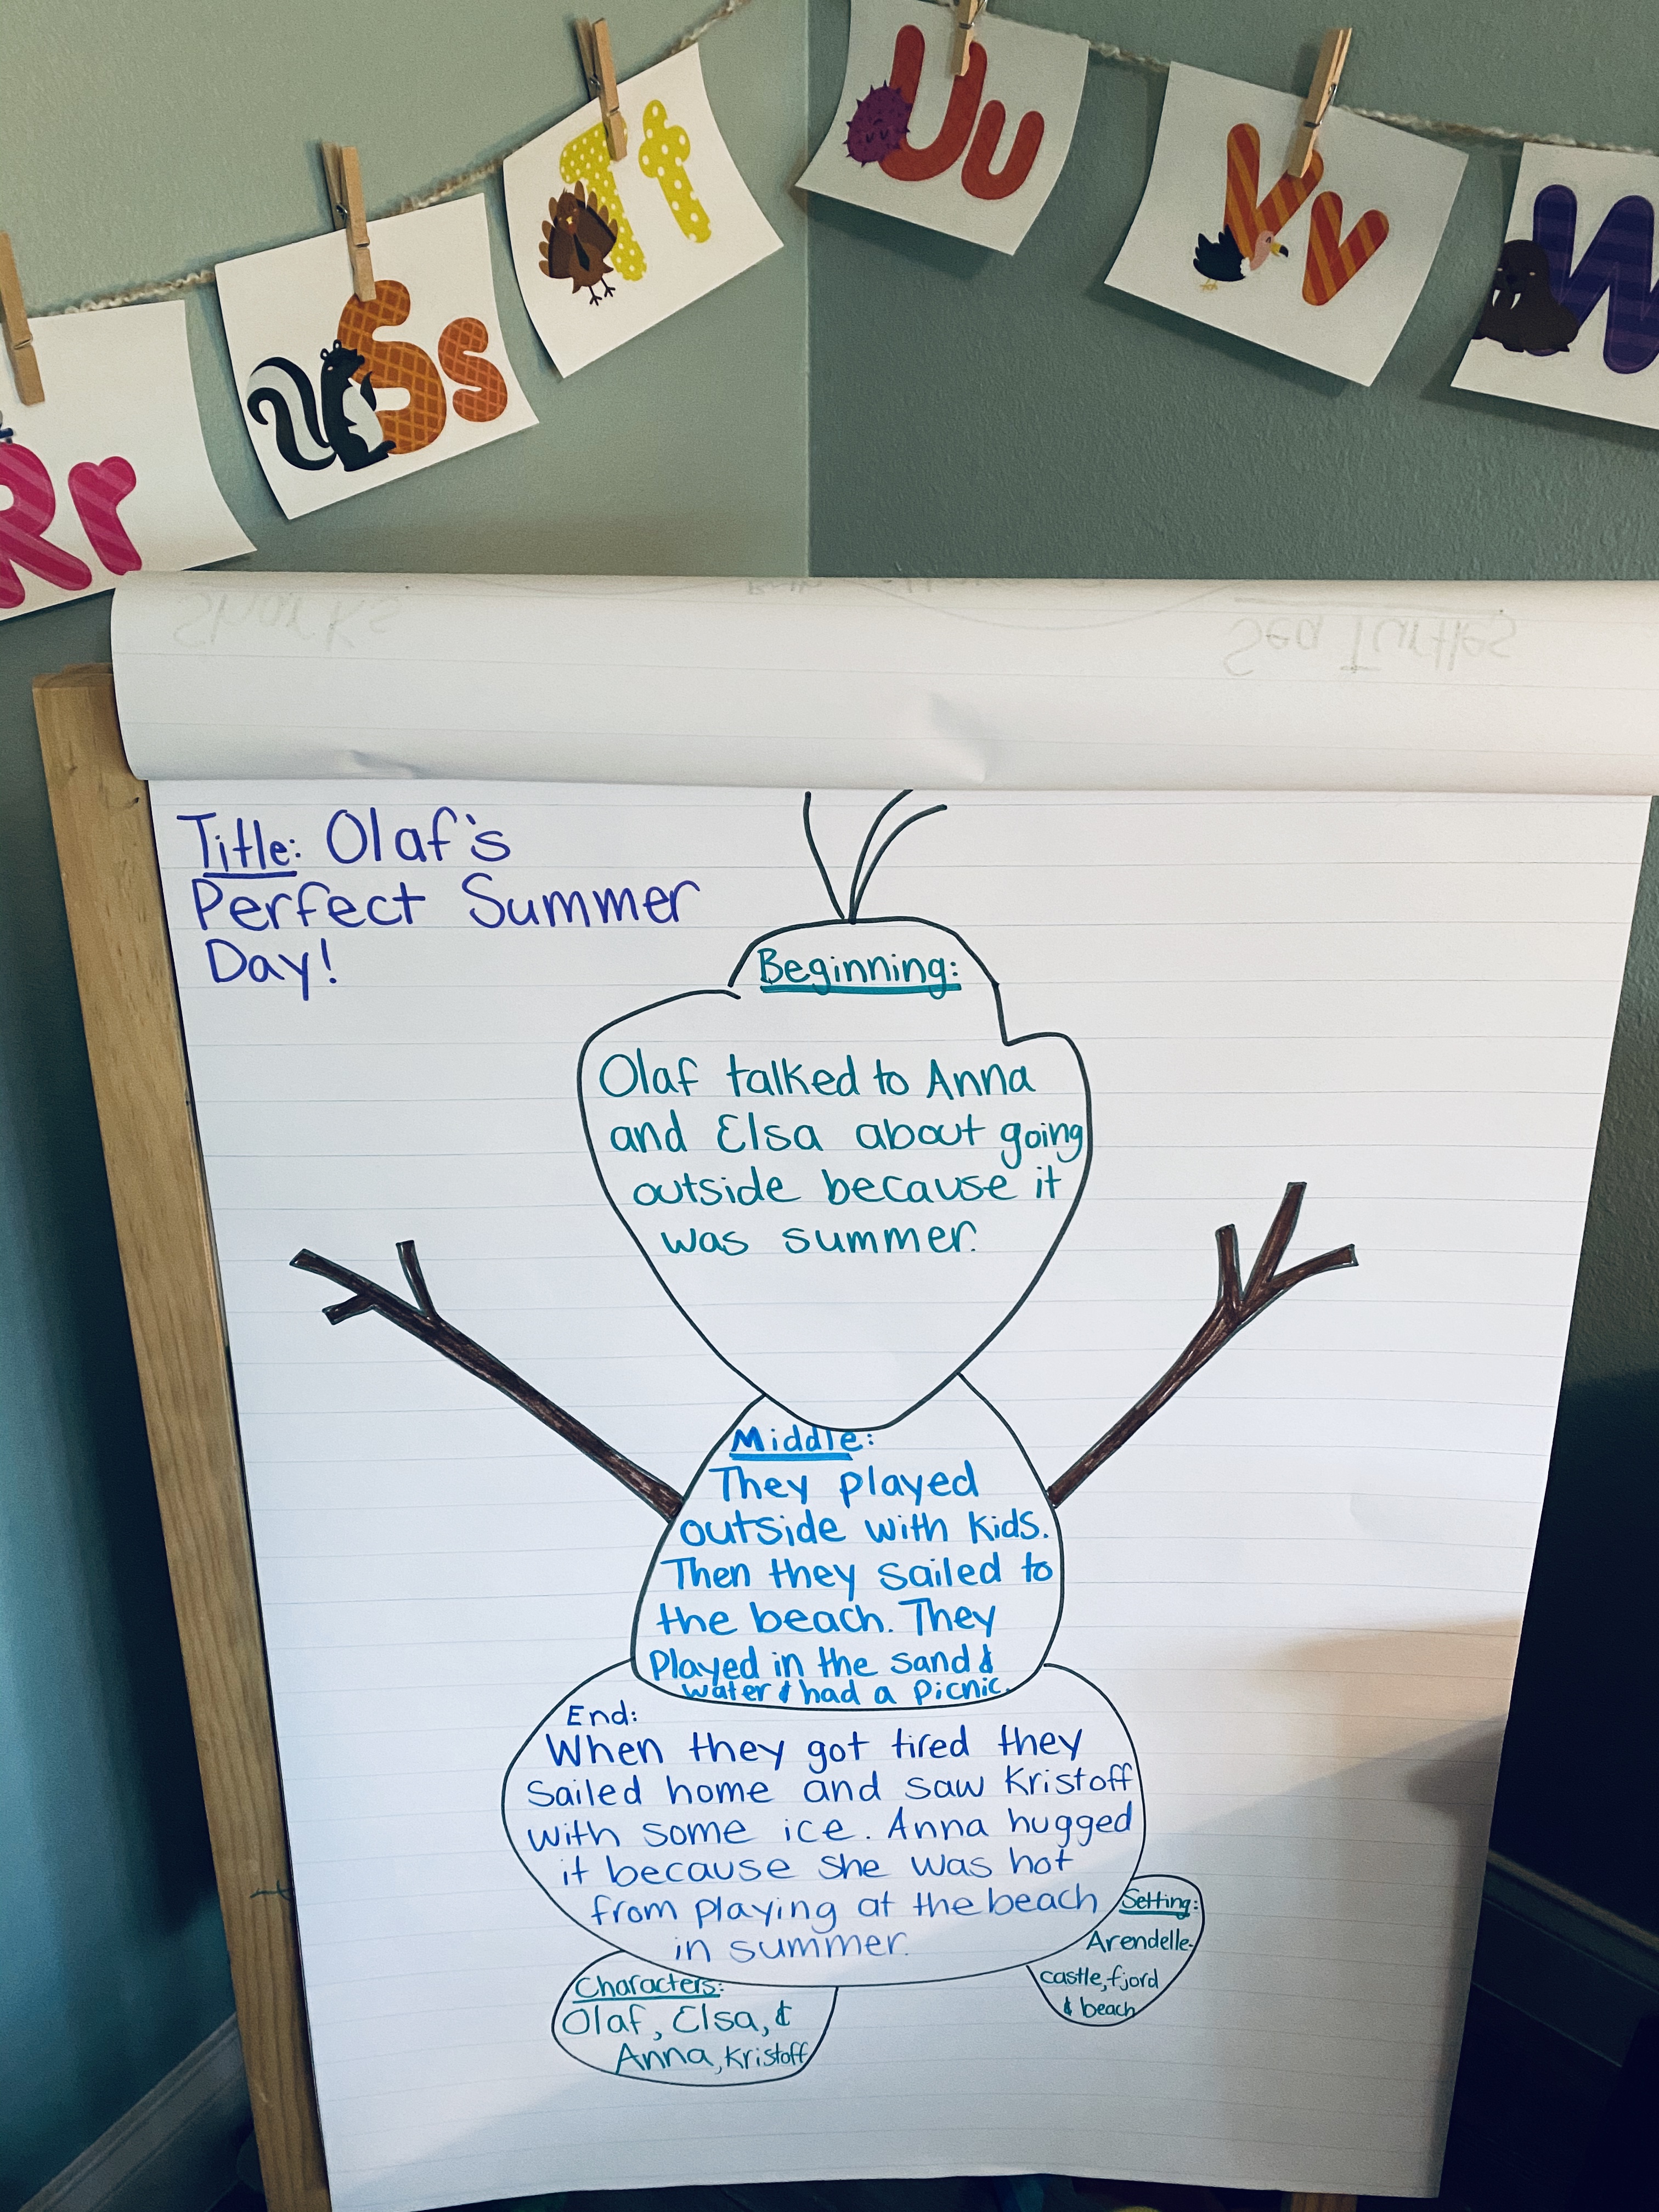 Rr
Ss
Tt
Uu
Vv
W
Sharks
Sea Turtles
Title: Olaf's
Perfect Summer
Day!
Beginning:
Olaf talked to Anna
and Elsa about going
outside because it
was summer.
Middle:
They played
outside with kids.
Then they sailed to
the beach. They
Played in the sand &
water & had a picnic.
End:
When they got tired they
Sailed home and saw Kristoff
with some ice. Anna hugged
it because she was hot
from playing at the beach
in summer.
Setting:
Arendelle-
castle, fjord
& beach
Characters:
Olaf, Elsa, &
Anna, Kristoff